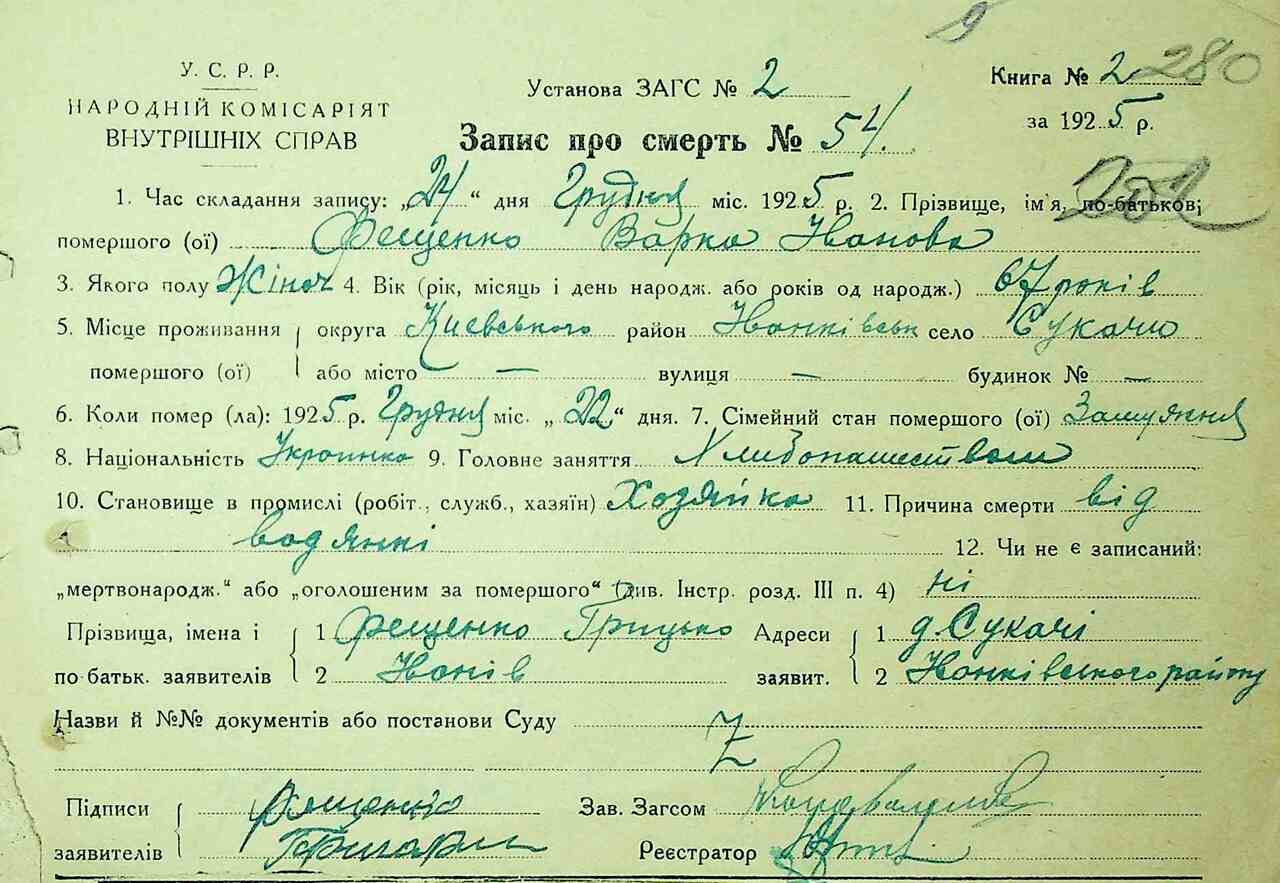 У. С. Р. Р.
НАРОДНІЙ КОМІСАРІЯТ
ВНУТРІШНІХ СПРАВ
Установа ЗАГС № 2
Книга № 2 280
за 1925 р.
Запис про смерть № 54.
1. Час складання запису: „24“ дня Грудня міс. 1925 р. 2. Прізвище, ім'я, по-батькові
помершого (ої) Фещенко Варка Іванова
3. Якого полу Жіноч 4. Вік (рік, місяць і день народж. або років од народж.) 67 років
5. Місце проживання округа Киевського район Іванківськ село Сукачи
помершого (ої) або місто — вулиця — будинок № —
6. Коли помер (ла): 1925 р. Грудня міс. „22“ дня. 7. Сімейний стан помершого (ої) Замужня
8. Національність Украинка 9. Головне заняття Хлибопашеством
10. Становище в промислі (робіт., служб., хазяїн) Хозяйка 11. Причина смерти від
водянкі 12. Чи не є записаний:
„мертвонародж.“ або „оголошеним за помершого“ (див. Інстр. розд. III п. 4) ні
Прізвища, імена і 1 Фещенко Грицько Адреси 1 д. Сукачі
по-батьк. заявителів 2 Іванів заявит. 2 Іванківського району
Назви й №№ документів або постанови Суду Z
Підписи Фещенко Зав. Загсом
заявителів Реєстратор